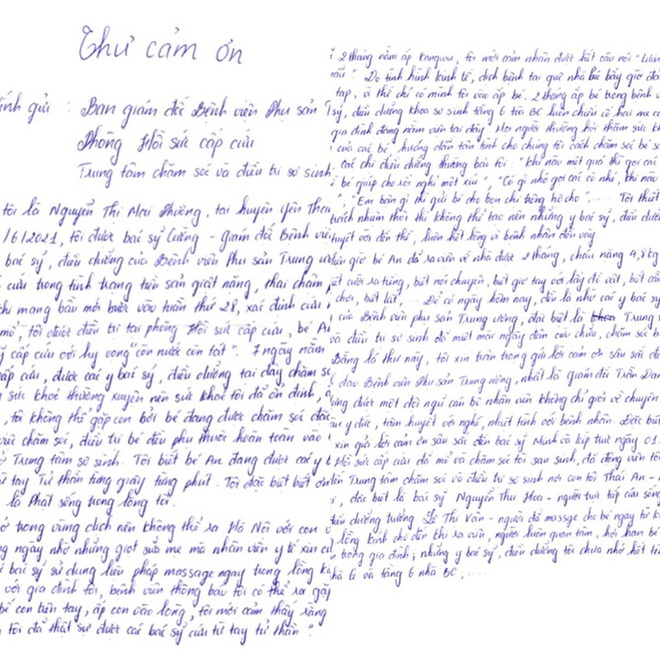 Thư cảm ơn
ính gửi : Ban giám đốc Bệnh viện Phụ sản T
Phòng Hồi sức cấp cứu
Trung tâm chăm sóc và điều trị sơ sinh
tôi là Nguyễn Thị Mai Phương, tại huyện Yên The
/6/2021, tôi được bác sỹ Cường - giám đốc Bệnh việ
bác sỹ, điều dưỡng của Bệnh viện Phụ sản Trung ươ
cứu trong tình trạng tiền sản giật nặng, thai chậm
hi mang bầu mới bước vào tuần thứ 28, xác định cứu
mổ, tôi được điều trị tại phòng Hồi sức cấp cứu, bé An
cấp cứu với hy vọng "còn nước còn tát". 7 ngày nằm
cấp cứu, được các y bác sỹ, điều dưỡng tại đây chăm s
sức khoẻ thường xuyên nên sức khoẻ tôi đã ổn định,
, tôi không thể gặp con bởi bé đang được chăm sóc đặc
chăm sóc, điều trị bé đều phụ thuộc hoàn toàn vào
ở Trung tâm sơ sinh. Tôi biết bé An đang được các y b
từ tay Tử thần từng giây từng phút. Tôi đặc biệt biết ơn
là Phật sống trong lòng tôi.
ở trong vùng dịch nên không thể ra Hà Nội với con
ng ngày nhờ những giọt sữa mẹ mà nhân viên y tế xin
bác sỹ sử dụng liệu pháp massage ngay trong lồng k
với gia đình tôi, bệnh viện thông báo tôi có thể ra gặ
bế con trên tay, áp con vào lòng, tôi mới cảm thấy rằng
tôi đã thật sự được các bác sỹ cứu từ tay tử thần".
2 tháng nằm ấp Kanguru, tôi mới cảm nhận được hết câu nói
". Do tình hình kinh tế, dịch bệnh tại quê nhà bà bây giờ
tạp, vì thế chỉ có mình tôi vào ấp bé. 2 tháng ấp bé trong bệnh v
sỹ, điều dưỡng khoa sơ sinh tầng 6 tòa BC luôn chiều cô hai mẹ co
gia đình đang nằm viện tại đây. Mọi người thường hỏi thăm sức kh
của các bé, hướng dẫn tận tình cho chúng tôi cách chăm sóc bé s
các chị điều dưỡng thường bảo tôi: "Khi nào mệt quá thì gọi các
bế giúp cho rồi nghỉ một xíu", "Có gì nhớ gọi các cô nhé, khi nào
, "Em bận gì thì gửi bé cho bọn chị trông hộ cho",.... Tôi thiết
trách nhiệm thôi thì không thể tạo nên những y bác sỹ, điều dưỡn
tuyệt vời đến thế, luôn hết lòng vì bệnh nhân đến vậy
giờ bé An đã ra viện về nhà được 2 tháng, cháu nặng 4,8 kg
cười ra tiếng, biết nói chuyện, biết giơ tay với lấy đồ vật, biết cầm
chơi, biết lật,... Để có ngày hôm nay, đều là nhờ các y bác sỹ
của Bệnh viện phụ sản Trung ương, đặc biệt là Trung
và điều trị sơ sinh đã miệt mài ngày đêm cứu chữa, chăm sóc b
Bằng lá thư này, tôi xin trân trọng gửi lời cảm ơn sâu sắc đế
đạo Bệnh viện Phụ sản Trung ương, nhất là Giám đốc Trần Dan
dựng được một đội ngũ cán bộ nhân viên không chỉ giỏi về chuyên
y đức, tâm huyết với nghề, nhiệt tình với bệnh nhân. Đặc biệt
xin gửi lời cảm ơn sâu sắc đến bác sỹ Minh và kíp trực ngày 01
Hồi sức cấp cứu đã mổ và chăm sóc tôi sau sinh, đã động viên tôi
Trung tâm chăm sóc và điều trị sơ sinh nơi con tôi Thái An -
, đặc biệt là bác sỹ Nguyễn Thu Hoa - người trực tiếp cứu sống
điều dưỡng trưởng Lê Thị Vân - người đã massage cho bé ngay từ k
lồng kính cho đến khi ra viện, người luôn quan tâm, hỏi han bé
trong gia đình; những y bác sỹ, điều dưỡng tôi chưa nhớ hết tê
nhà G và tầng 6 nhà BC,....